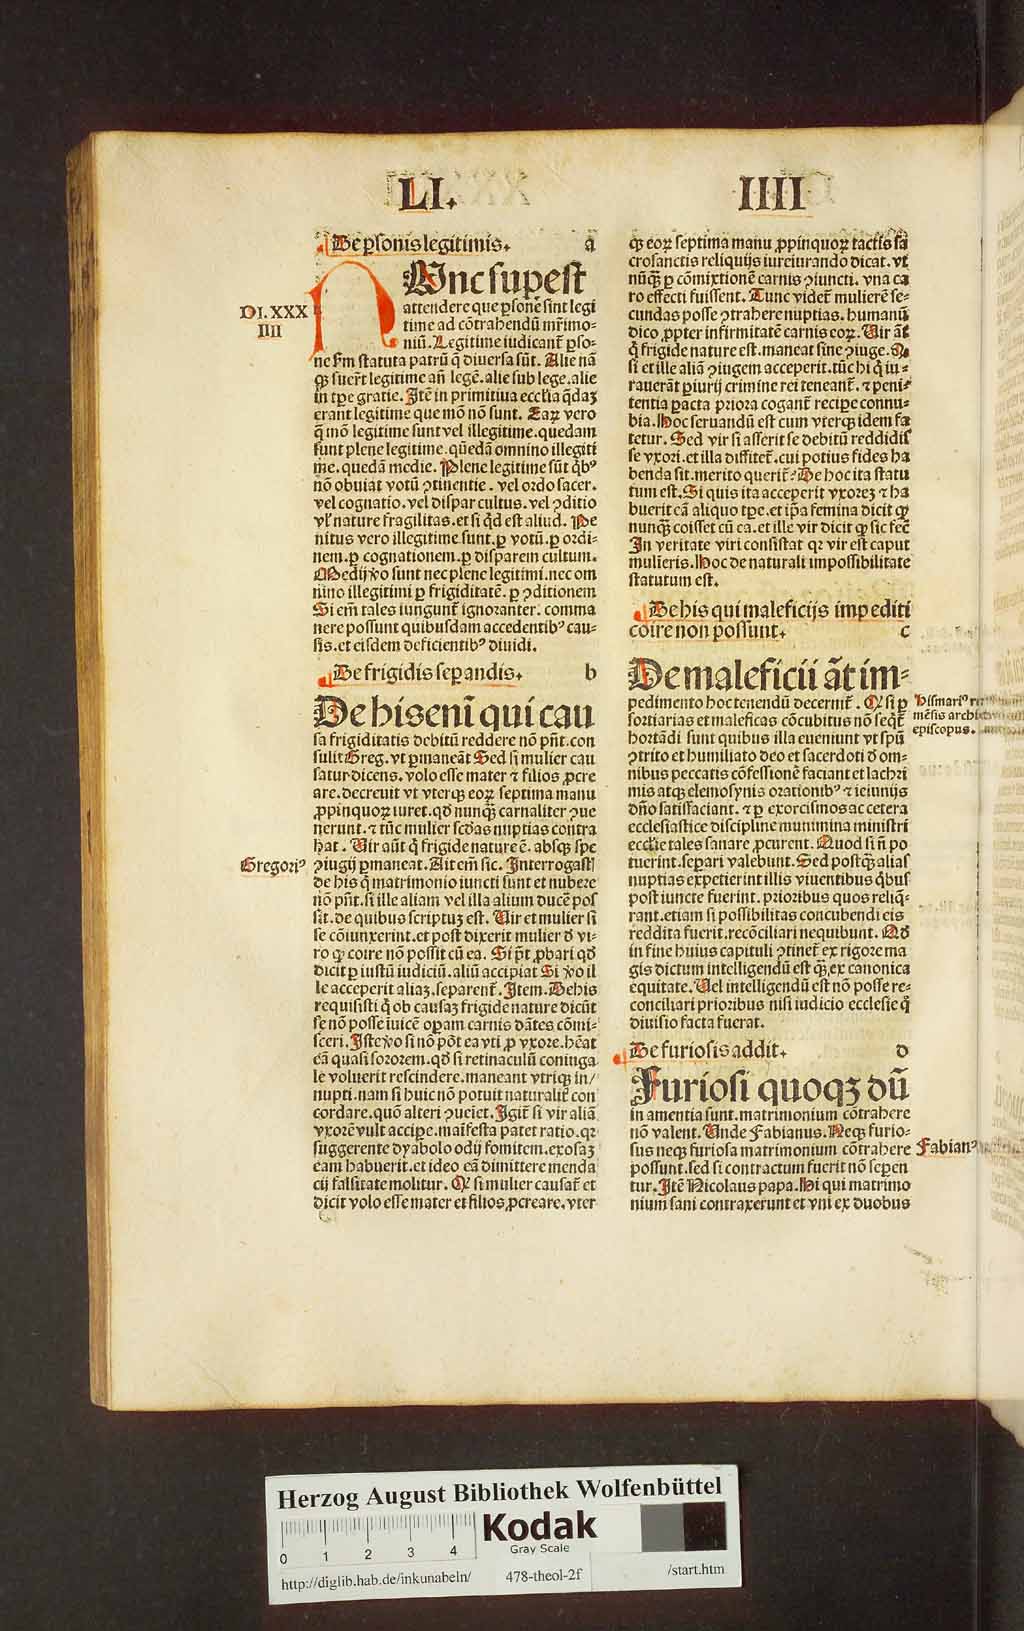 LI.
IIII
¶ De ꝑsonis legitimis. a
NUnc suꝑest
DI. XXX
IIII
attendere que ꝑsone sint legi
time ad cōtrahendū mr̄imo-
niū. Legitime iudicant᷑ ꝑso-
ne ẜm statuta patrū q̄ diuersa sūt. Alie nā
ꝙ̄ fuer̄t legitime añ legē. alie sub lege. alie
in tꝑe gratie. Itē in primitiua eccl̄ia q̄daꝫ
erant legitime que mō nō sunt. Eaꝝ vero
q̄ mō legitime sunt vel illegitime. quedam
sunt plene legitime. quedā omnino illegiti
me. quedā medie. Plene legitime sūt q̄bꝰ
nō obuiat votū ꝯtinentie. vel ordo sacer.
vel cognatio. vel dispar cultus. vel ꝯditio
vl̓ nature fragilitas. et si q̄d est aliud. Pe
nitus vero illegitime sunt. ꝑ votū. ꝑ ordi-
nem. ꝑ cognationem. ꝑ disparem cultum.
Medij ꝟo sunt nec plene legitimi. nec om
nino illegitimi ꝑ frigiditatē. ꝑ ꝯditionem
Si em̄ tales iungunt᷑ ignoranter. comma
nere possunt quibusdam accedentibꝰ cau-
sis. et eisdem deficientibꝰ diuidi.
¶ De frigidis seꝑandis. b
De his eni̅ qui cau
sa frigiditatis debitū reddere nō pn̄t. con
sulit Greg. vt ꝑmaneāt Sed si mulier cau
satur dicens. volo esse mater ⁊ filios ꝓcre
are. decreuit vt vterqꝫ eoꝝ septima manu
ꝓpinquoꝝ iuret. qd̄ nunqꝫ̄ carnaliter ꝯue
nerunt. ⁊ tūc mulier scd̄as nuptias contra
hat. Uir aūt q̄ frigide nature ē. absqꝫ spe
Gregoriꝰ
ꝯiugij ꝑmaneat. Ait em̄ sic. Interrogasti
de his q̄ matrimonio iuncti sunt et nubere
nō pn̄t. si ille aliam vel illa alium ducē pos
sit. de quibus scriptuꝫ est. Uir et mulier si
se cōiunxerint. et post dixerit mulier ð vi-
ro ꝙ coire nō possit cū ea. Si pōt ꝓbari qd̄
dicit ꝑ iustū iudiciū. aliū accipiat Si ꝟo il
le acceperit aliaꝫ. separent᷑. Item. De his
requisisti q̄ ob causaꝫ frigide nature dicūt
se nō posse īuicē oꝑam carnis dātes cōmi-
sceri. Iste ꝟo si nō pōt ea vti ꝓ vxore. hēat
eā quasi sororem. qd̄ si retinaculū coniuga
le voluerit rescindere. maneant vtriqꝫ in/
nupti. nam si huic nō potuit naturalit᷑ con
cordare. quō alteri ꝯueiet. Igit᷑ si vir aliā
vxorē vult acciꝑe. maīfesta patet ratio. qꝛ
suggerente dyabolo odij fomitem. exosaꝫ
eam habuerit. et ideo eā dimittere menda
cij falsitate molitur. Ꝙ si mulier causat᷑ et
dicit volo esse mater et filios ꝓcreare. vter
qꝫ eoꝝ septima manu ꝓpinquoꝝ tactis sa
crosanctis reliquijs iureiurando dicat. vt
nūqꝫ̄ ꝑ cōmixtionē carnis ꝯiuncti. vna ca
ro effecti fuissent. Tunc videt᷑ mulierē se-
cundas posse ꝯtrahere nuptias. humanū
dico ꝓpter infirmitatē carnis eoꝝ. Uir āt
q̄ frigide nature est. maneat sine ꝯiuge. Ꝙ
si et ille aliā ꝯiugem acceperit. tūc hi q̄ iu-
rauerāt ꝑiurij crimine rei teneant᷑. ⁊ peni-
tentia ꝑacta priora cogant᷑ reciꝑe connu-
bia. Hoc seruandū est cum vterqꝫ idem fa
tetur. Sed vir si asserit se debitū reddidisse
se vxori. et illa diffitet᷑. cui potius fides ha
benda sit. merito querit᷑. De hoc ita statu
tum est. Si quis ita acceperit vxoreꝫ ⁊ ha
buerit eā aliquo tꝑe. et ip̄a femina dicit ꝙ
nunqꝫ̄ coisset cū ea. et ille vir dicit ꝙ sic fec̄
In veritate viri consistat qꝛ vir est caput
mulieris. Hoc de naturali impossibilitate
statutum est.
¶ De his qui maleficijs impediti
coire non possunt. c
De maleficii āt im-
pedimento hoc tenendū decernit᷑. Ꝙ si ꝑ
Hismarꝰ re
mēsis archi
episcopus.
sortiarias et maleficas cōcubitus nō seqt᷑
hortādi sunt quibus illa eueniunt vt spū
ꝯtrito et humiliato deo et sacerdoti ð om-
nibus peccatis cōfessionē faciant et lachri
mis atqꝫ elemosynis orationibꝰ ⁊ ieiunijs
dn̄o satisfaciant. ⁊ ꝑ exorcismos ac cetera
ecclesiastice discipline munimina ministri
eccl̄ie tales sanare ꝓcurent. Quod si n̄ po
tuerint. seꝑari valebunt. Sed postqꝫ̄ alias
nuptias expetierint illis viuentibus q̄bus
post iuncte fuerint. prioribus quos reliq̄-
rant. etiam si possibilitas concubendi eis
reddita fuerit. recōciliari nequibunt. Qd̄
in fine huius capituli ꝯtinet᷑ ex rigore ma
gis dictum intelligendū est qꝫ̄ ex canonica
equitate. Uel intelligendū est nō posse re-
conciliari prioribus nisi iudicio ecclesie q̄
diuisio facta fuerat.
¶ De furiosis addit. d
Furiosi quoqꝫ dū
in amentia sunt. matrimonium cōtrahere
nō valent. Unde Fabianus. Neqꝫ furio-
sus neqꝫ furiosa matrimonium cōtrahere
Fabianꝰ
possunt. sed si contractum fuerit nō seꝑen
tur. Itē Nicolaus papa. Hi qui matrimo
nium sani contraxerunt et vni ex duobus
Herzog August Bibliothek Wolfenbüttel
0 1 2 3 4
Kodak
Gray Scale
http://diglib.hab.de/inkunabeln/ 478-theol-2f /start.htm